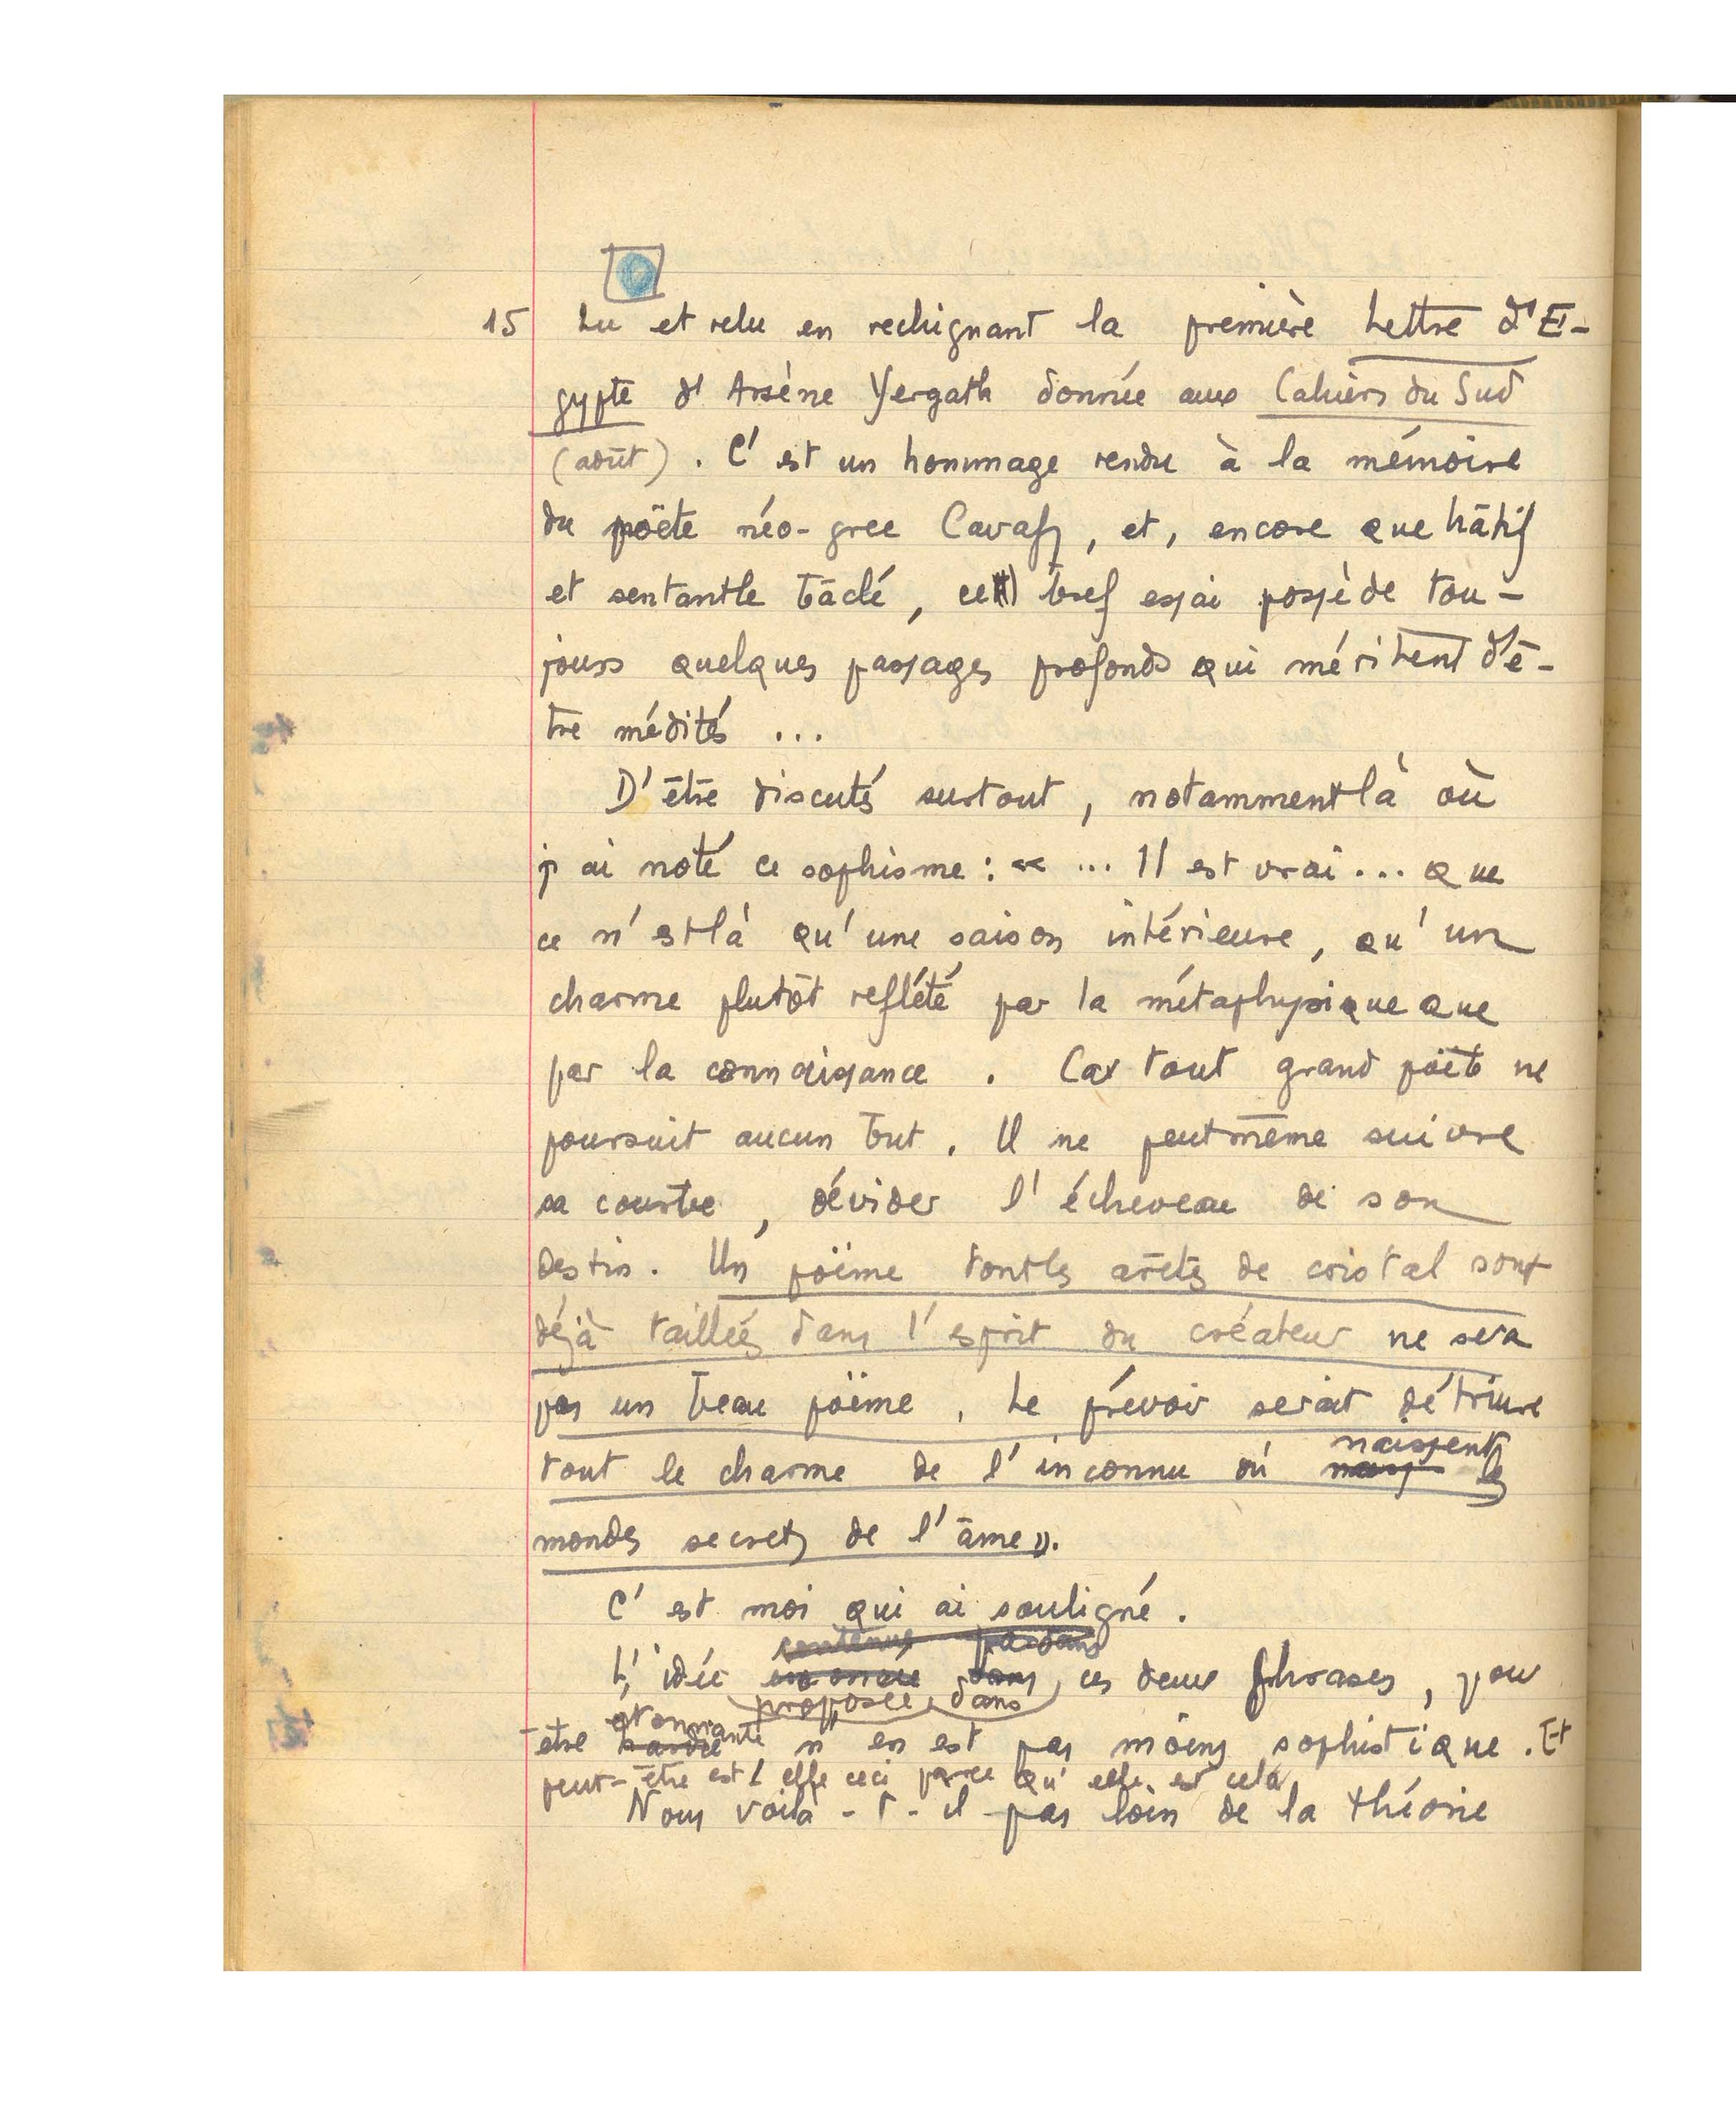 15 Lu et relu en rechignant la première Lettre d'E-
gypte d'Arsène Yergath donnée aux Cahiers du Sud
(août). C'est un hommage rendu à la mémoire
du poëte néo-grec Cavafy, et, encore que hâtif
et sentant le bâclé, ce bref essai possède tou-
jours quelques passages profonds qui méritent d'ê-
tre médités ...
D'être discutés surtout, notamment là où
j'ai noté ce sophisme : « ... Il est vrai ... que
ce n'est là qu'une saison intérieure, qu'un
charme plutôt reflété par la métaphysique que
par la connaissance . Car tout grand poëte ne
poursuit aucun but. Il ne peut même suivre
sa courbe, dévider l'écheveau de son
destin. Un poëme dont les arêtes de cristal sont
déjà taillées dans l'esprit du créateur ne sera
pas un beau poëme. Le prévoir serait détruire
naissent
tout le charme de l'inconnu où les
mondes secrets de l'âme ».
C'est moi qui ai souligné.
contenue par dans
L'idée dans ces deux phrases, pour
proposée dans
étonnante
être hardie n'en est pas moins sophistique. Et
peut-être est elle ceci parce qu'elle est cela
Nous voilà-t-il pas loin de la théorie